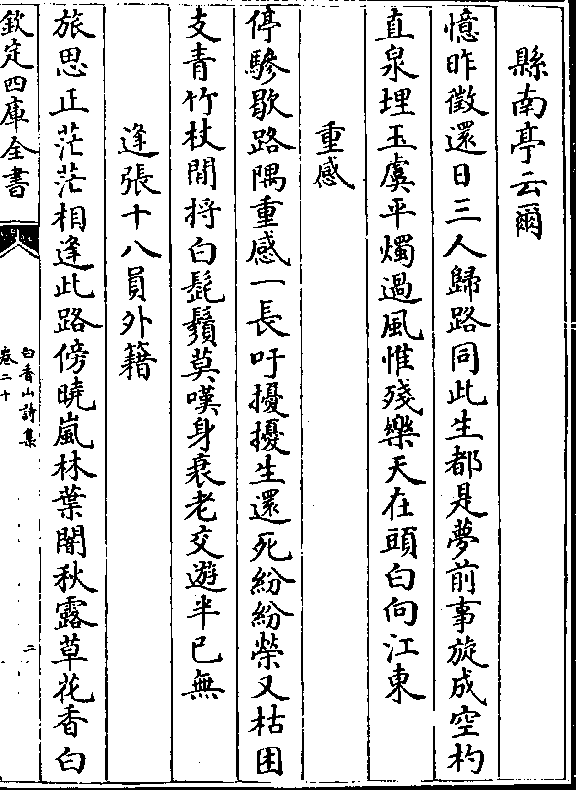 縣南亭云爾
憶昨徵還日三人歸路同此生都是夢前事旋成空杓
直泉埋玉虞平燭過風惟殘樂天在頭白向江東
重感
停驂歇路隅重感一長吁擾擾生還死紛紛榮又枯困
支青竹杖閒捋白髭鬚莫嘆身衰老交遊半已無
逢張十八員外籍
旅思正茫茫相逢此路傍曉嵐林葉闇秋露草花香白
欽定四庫全書
白香山詩集
卷二十
二